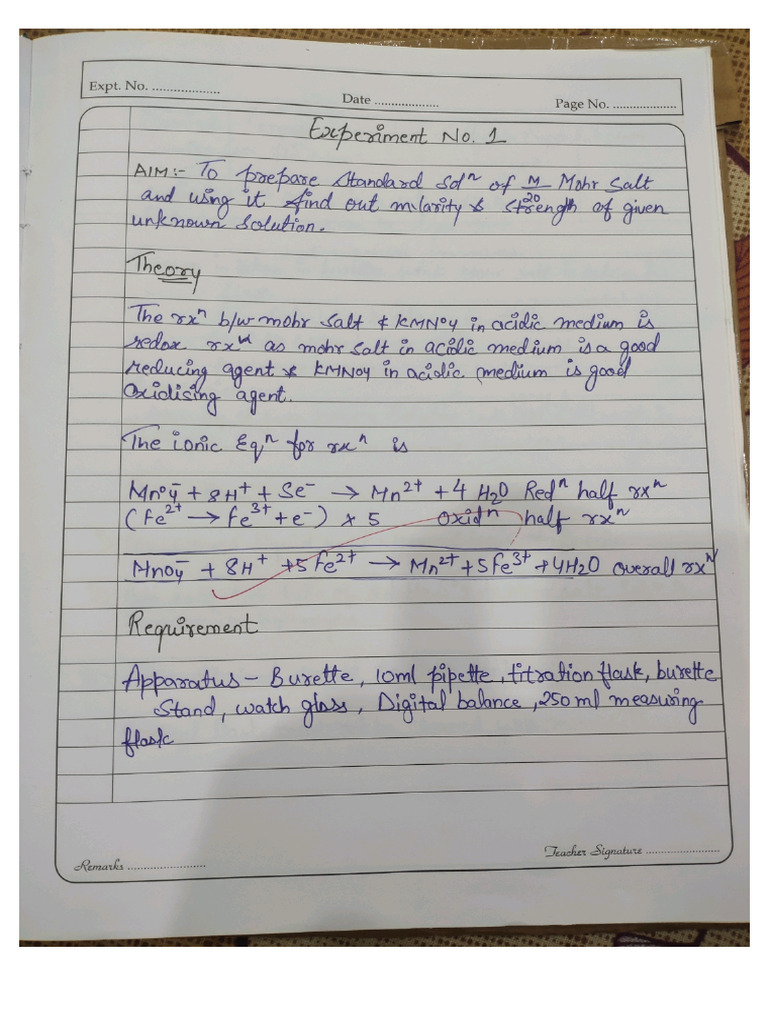 Expt. No. ...................
Date ...................
Page No. ...................
Experiment No. 1
AIM:- To prepare Standard Solⁿ of M/20 Mohr Salt
and using it find out molarity & strength of given
unknown solution.
Theory
The rxⁿ b/w mohr salt & KMNO4 in acidic medium is
redox rxⁿ as mohr salt in acidic medium is a good
reducing agent & KMNO4 in acidic medium is good
Oxidising agent.
The ionic Eqⁿ for rxⁿ is
MnO₄⁻ + 8H⁺ + 5e⁻ → Mn²⁺ + 4 H₂O Redⁿ half rxⁿ
(Fe²⁺ → Fe³⁺ + e⁻) × 5 Oxidⁿ half rxⁿ
MnO₄⁻ + 8H⁺ + 5Fe²⁺ → Mn²⁺ + 5Fe³⁺ + 4H₂O overall rxⁿ
Requirement
Apparatus – Burette, 10ml pipette, titration flask, burette
Stand, watch glass, Digital balance, 250 ml measuring
flask
Teacher Signature ........................
Remarks .........................